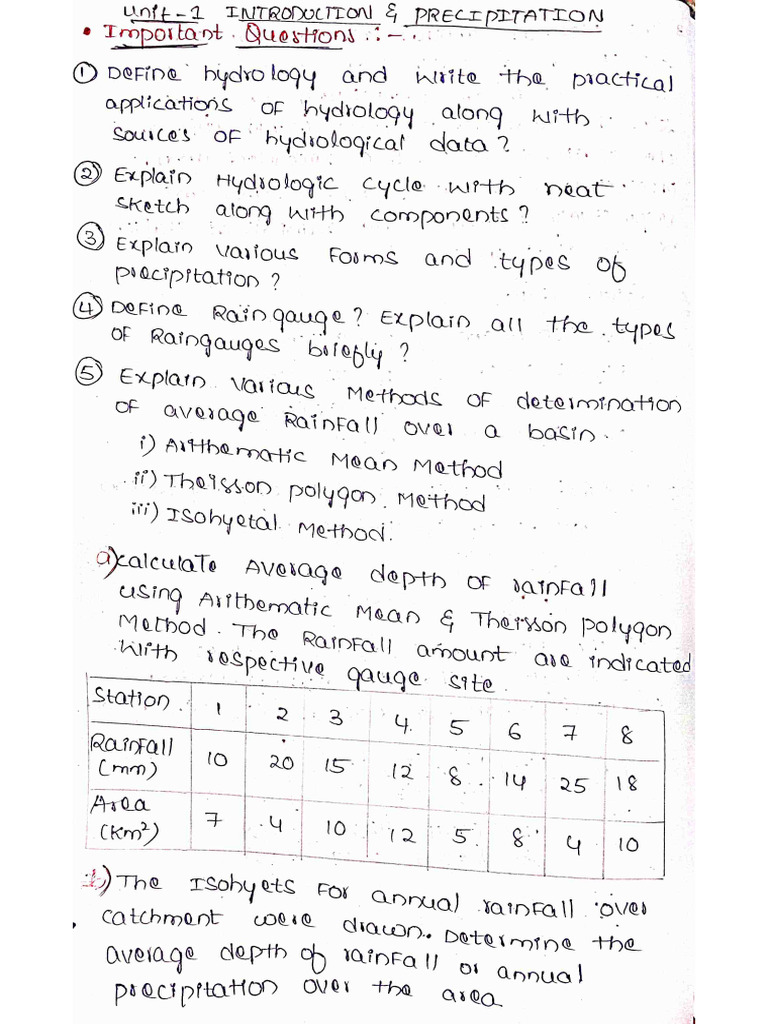 Unit-1 INTRODUCTION & PRECIPITATION
• Important Questions :-
① Define hydrology and write the practical
applications of hydrology along with
source's of hydrological data?
② Explain Hydrologic cycle with neat
sketch along with components?
③ Explain various forms and types of
precipitation?
④ Define Raingauge? Explain all the types
of Raingauges briefly?
⑤ Explain various Methods of determination
of average Rainfall over a basin.
i) Arithematic Mean Method
ii) Theisson polygon Method
iii) Isohyetal Method.
a) Calculate Average depth of rainfall
using Arithematic Mean & Theisson polygon
Method. The Rainfall amount are indicated
with respective gauge site
Station 1 2 3 4 5 6 7 8
Rainfall (mm) 10 20 15 12 8 14 25 18
Area (Km²) 7 4 10 12 5 8 4 10
b) The Isohyets for annual rainfall over
catchment were drawn. Determine the
average depth of rainfall or annual
precipitation over the area